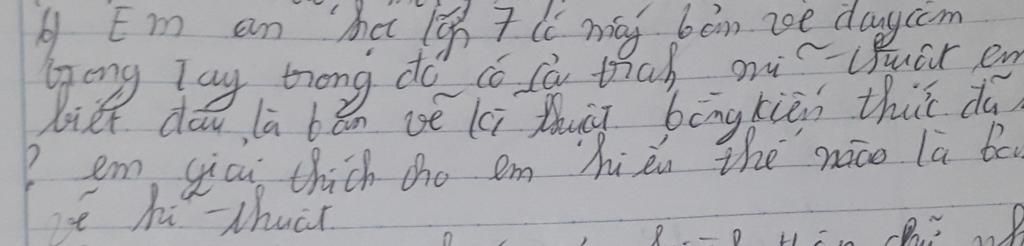 b) Em an học lớp 7 có mấy bản vẽ đang cầm
trong Tay trong đó có cả tranh mĩ - thuật em
biết đâu là bản vẽ kĩ thuật bằng kiến thức đã
? em giải thích cho em hiểu thế nào là bản
vẽ kĩ - thuật